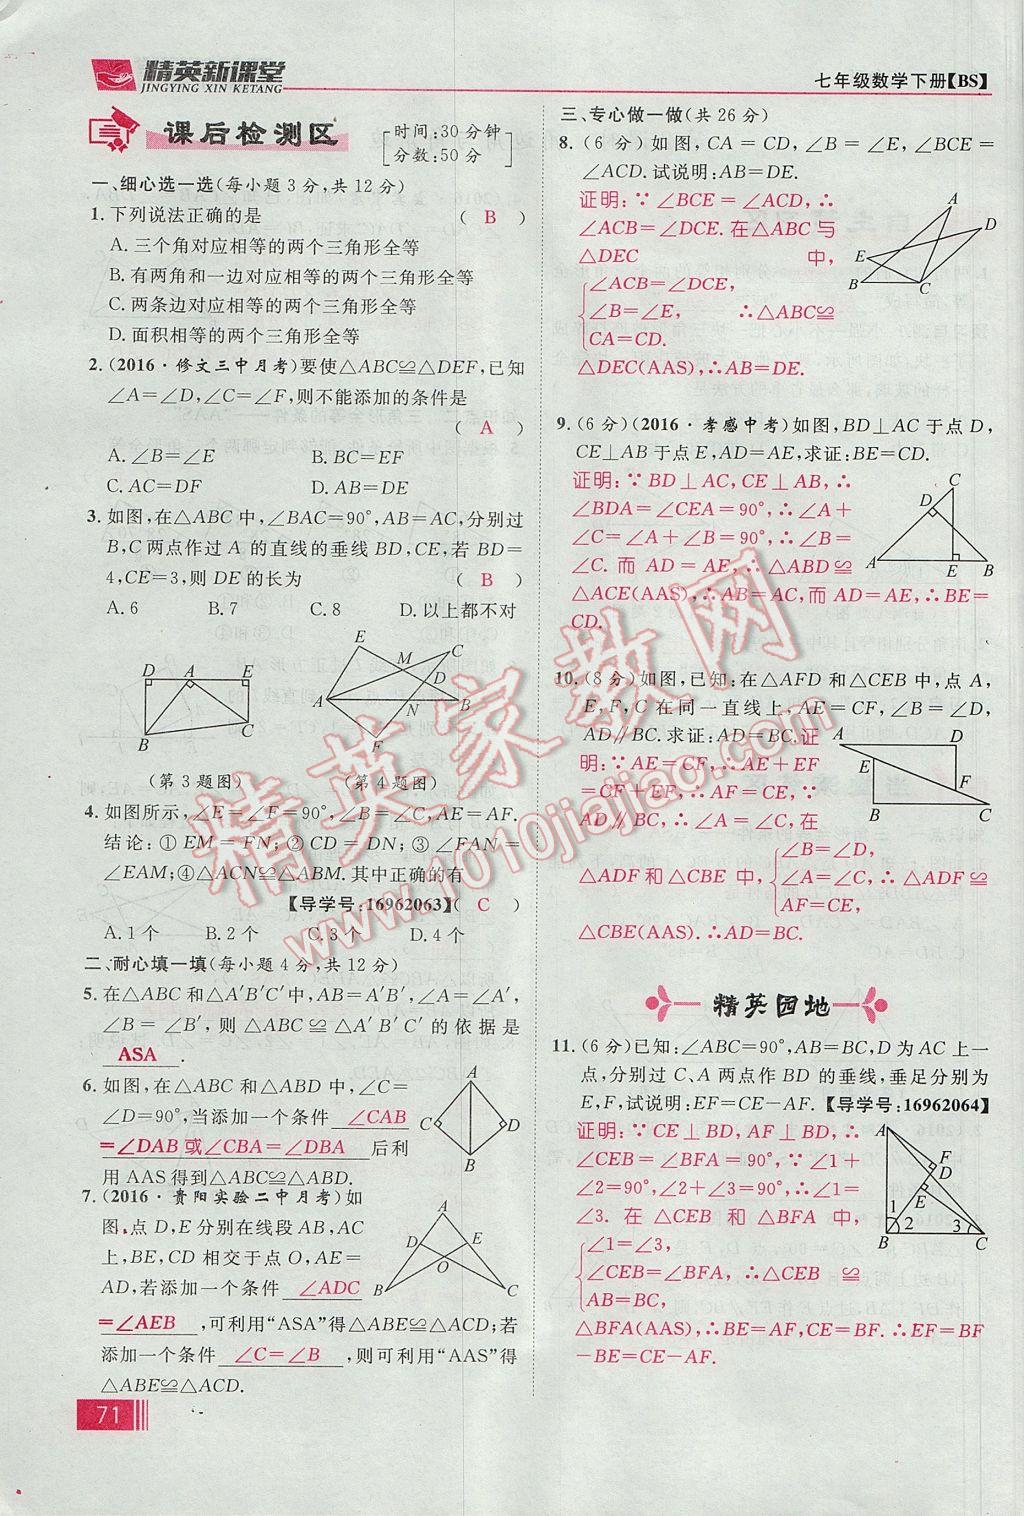 精英新课堂
JINGYING XIN KETANG
七年级数学下册【BS】
课后检测区
时间:30分钟
分数:50分
一、细心选一选(每小题3分,共12分)
1.下列说法正确的是 ( B )
A.三个角对应相等的两个三角形全等
B.有两角和一边对应相等的两个三角形全等
C.两条边对应相等的两个三角形全等
D.面积相等的两个三角形全等
2.(2016·修文三中月考)要使△ABC≌△DEF,已知
∠A=∠D,∠C=∠F,则不能添加的条件是
( A )
A.∠B=∠E B.BC=EF
C.AC=DF D.AB=DE
3.如图,在△ABC中,∠BAC=90°,AB=AC,分别过
B,C两点作过A的直线的垂线BD,CE,若BD=
4,CE=3,则DE的长为 ( B )
A.6 B.7 C.8 D.以上都不对
D A E
B C
E
M C
D
A N B
F
(第3题图) (第4题图)
4.如图所示,∠E=∠F=90°,∠B=∠C,AE=AF.
结论:①EM=FN;②CD=DN;③∠FAN=
∠EAM;④△ACN≌△ABM.其中正确的有
【导学号:16962063】( C )
A.1个 B.2个 C.3个 D.4个
二、耐心填一填(每小题4分,共12分)
5.在△ABC和△A′B′C′中,AB=A′B′,∠A=∠A′,
∠B=∠B′,则△ABC≌△A′B′C′的依据是
ASA.
6.如图,在△ABC和△ABD中,∠C=
∠D=90°,当添加一个条件 ∠CAB
=∠DAB或∠CBA=∠DBA 后利
用AAS得到△ABC≌△ABD.
A
C D
B
7.(2016·贵阳实验二中月考)如
图,点D,E分别在线段AB,AC
上,BE,CD相交于点O,AE=
AD,若添加一个条件 ∠ADC
=∠AEB,可利用“ASA”得△ABE≌△ACD;若
添加一个条件 ∠C=∠B,则可利用“AAS”得
△ABE≌△ACD.
A
D E
O
B C
71
三、专心做一做(共26分)
8.(6分)如图,CA=CD,∠B=∠E,∠BCE=
∠ACD.试说明:AB=DE.
证明:∵∠BCE=∠ACD,∴
∠ACB=∠DCE.在△ABC与
△DEC 中,
∠ACB=∠DCE,
∠B=∠E, ∴△ABC≌
CA=CD.
△DEC(AAS),∴AB=DE.
A
D
E
B C
9.(6分)(2016·孝感中考)如图,BD⊥AC于点D,
CE⊥AB于点E,AD=AE,求证:BE=CD.
证明:∵BD⊥AC,CE⊥AB,∴
∠BDA=∠CEA=90°,∴∠A+
∠C=∠A+∠B=90°,∴∠B=
∠C.而AD=AE,∴△ABD≌
ACE(AAS),∴AB=AC,而AD=AE,∴BE=
CD.
C
D
A E B
10.(8分)如图,已知:在△AFD和△CEB中,点A,
E,F,C在同一直线上,AE=CF,∠B=∠D,
AD∥BC.求证:AD=BC.证
明:∵AE=CF,∴AE+EF
=CF+EF,∴AF=CE.∵
AD∥BC,∴∠A=∠C,在
∠B=∠D,
△ADF和△CBE中,∠A=∠C,∴△ADF≌
AF=CE,
△CBE(AAS).∴AD=BC.
A D
E
F
B C
精英园地
11.(6分)已知:∠ABC=90°,AB=BC,D为AC上一
点,分别过C、A两点作BD的垂线,垂足分别为
E,F,试说明:EF=CE-AF.【导学号:16962064】
证明:∵CE⊥BD,AF⊥BD,∴
∠CEB=∠BFA=90°,∵∠1+
∠2=90°,∠2+∠3=90°,∴∠1=
∠3.在△CEB和△BFA中,
∠1=∠3,
∠CEB=∠BFA,∴△CEB≌
AB=BC,
△BFA(AAS),∴BE=AF,CE=BF.∴EF=BF
-BE=CE-AF.
A
F
D
E
1
2 3
B C
精英家教网
www.1010jiajiao.com